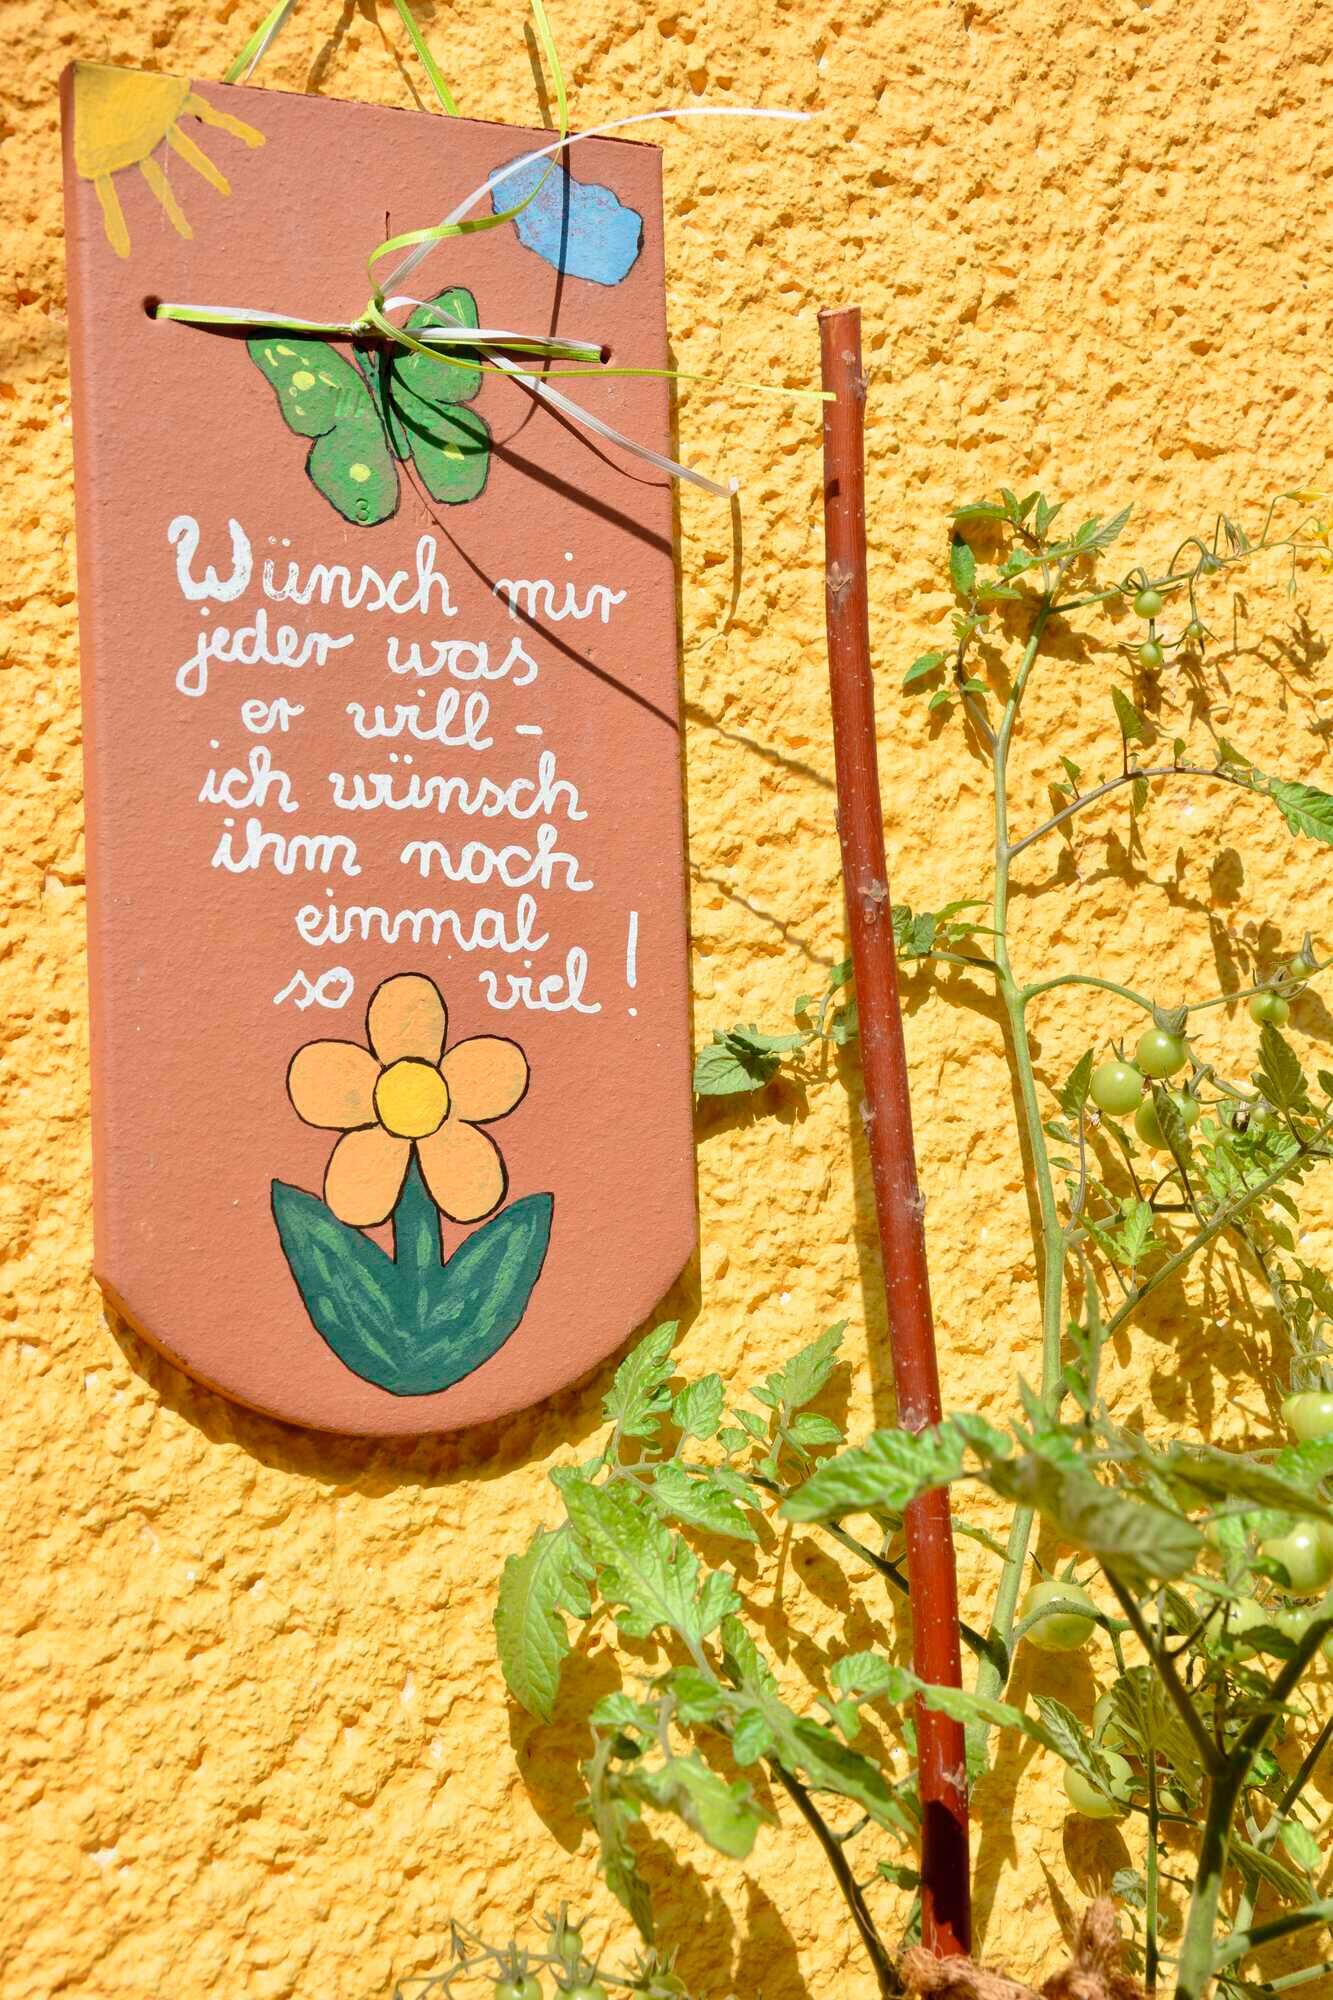 Wünsch mir
jeder was
er will -
ich wünsch
ihm noch
einmal
so viel !